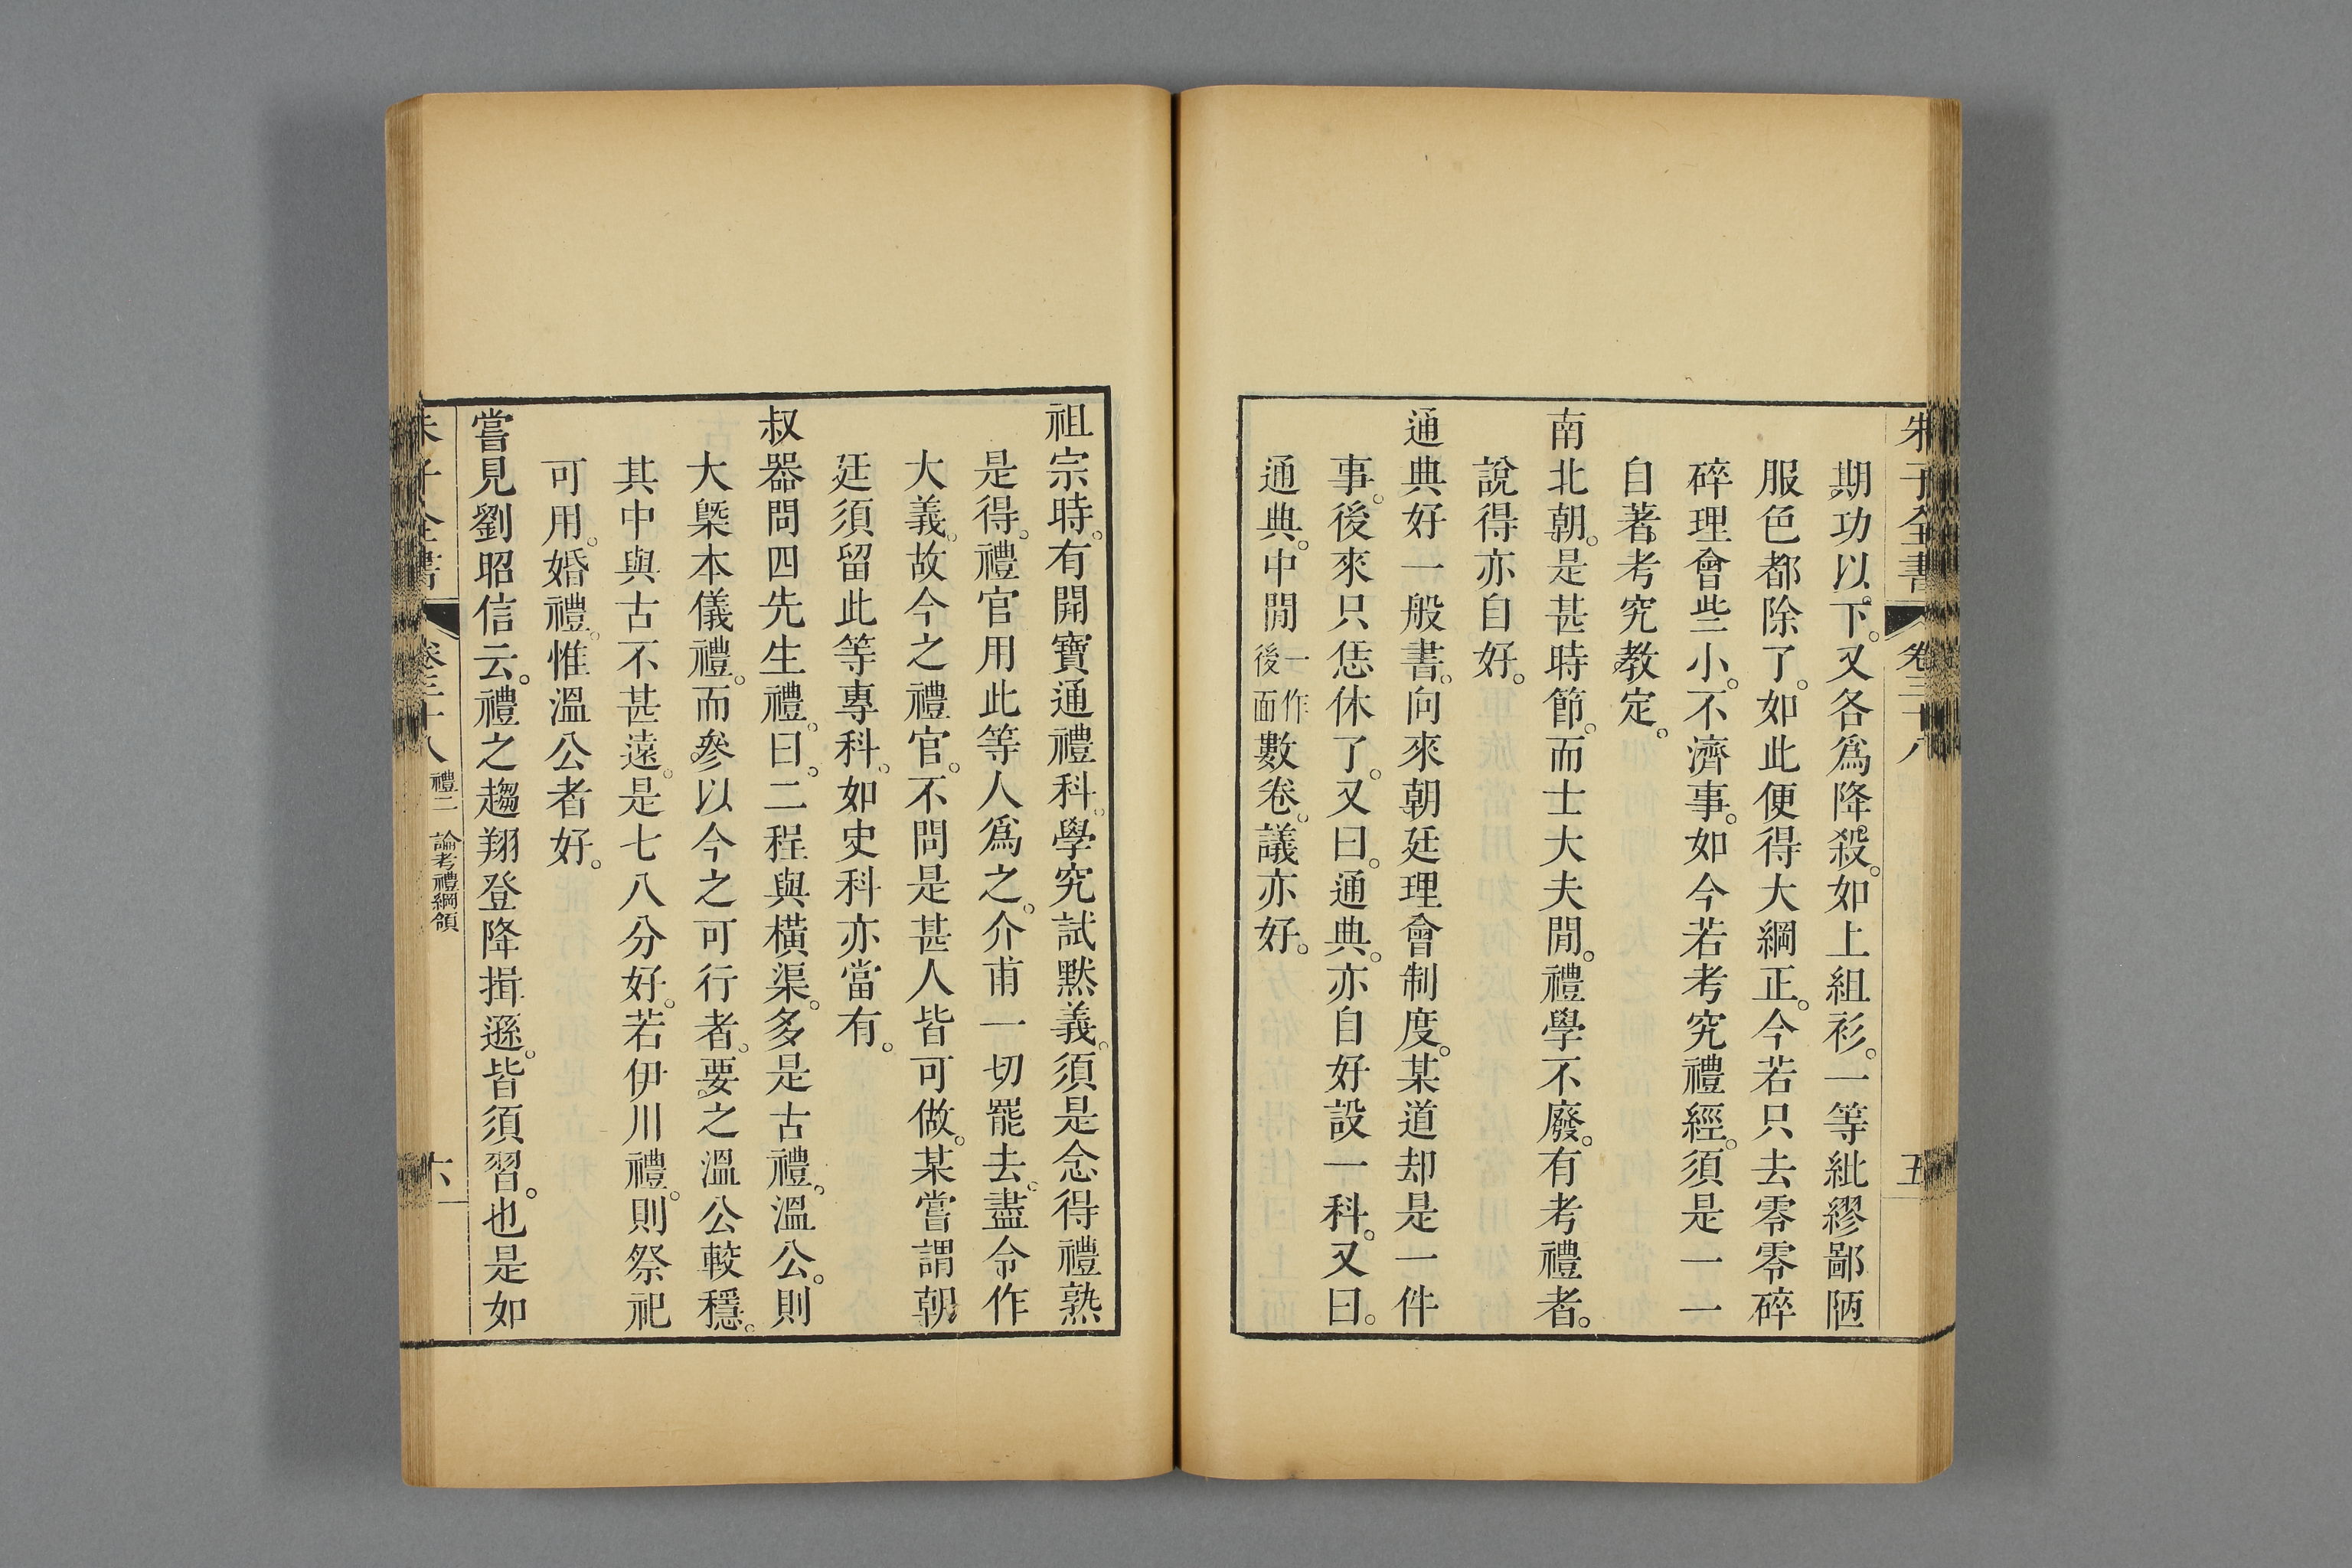 朱子全書 卷三十八 五
期功以下。又各爲降殺。如上組衫。一等紕繆鄙陋
服色都除了。如此便得大綱正。今若只去零零碎
碎理會些小。不濟事。如今若考究禮經。須是一一
自著考究教定。
南北朝。是甚時節。而士大夫閒。禮學不廢。有考禮者。
說得亦自好。
通典好一般書。向來朝廷理會制度。某道却是一件
事。後來只恁休了。又曰。通典。亦自好設一科。又曰。
通典。中閒一作後面數卷。議亦好。
祖宗時。有開寶通禮科。學究試默義。須是念得禮熟
是得。禮官用此等人爲之。介甫一切罷去。盡令作
大義。故今之禮官。不問是甚人皆可做。某嘗謂朝
廷須留此等專科。如史科亦當有。
叔器問四先生禮。曰。二程與橫渠。多是古禮。溫公。則
大槩本儀禮。而參以今之可行者。要之溫公較穩。
其中與古不甚遠。是七八分好。若伊川禮。則祭祀
可用。婚禮。惟溫公者好。
嘗見劉昭信云。禮之趨翔登降揖遜。皆須習。也是如
朱子全書 卷三十八 禮二 論考禮綱領 六